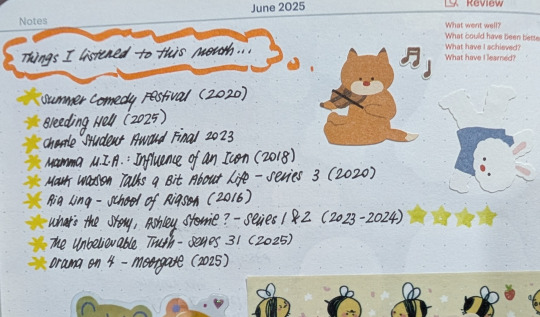 June 2025
Review
Notes
What went well?
What could have been bette
What have I achieved?
What have I learned?
Things I listened to this month...
Summer Comedy Festival (2020)
Bleeding Hell (2025)
Chortle Student Award Final 2023
Mamma M.I.A.: Influence of an Icon (2018)
Mark Watson Talks a Bit About Life - series 3 (2020)
Ria Lina - School of Riason (2016)
What's the Story, Ashley Storrie? - Series 1 & 2 (2023-2024)
The Unbelievable Truth - series 31 (2025)
Drama on 4 - Moorgate (2025)